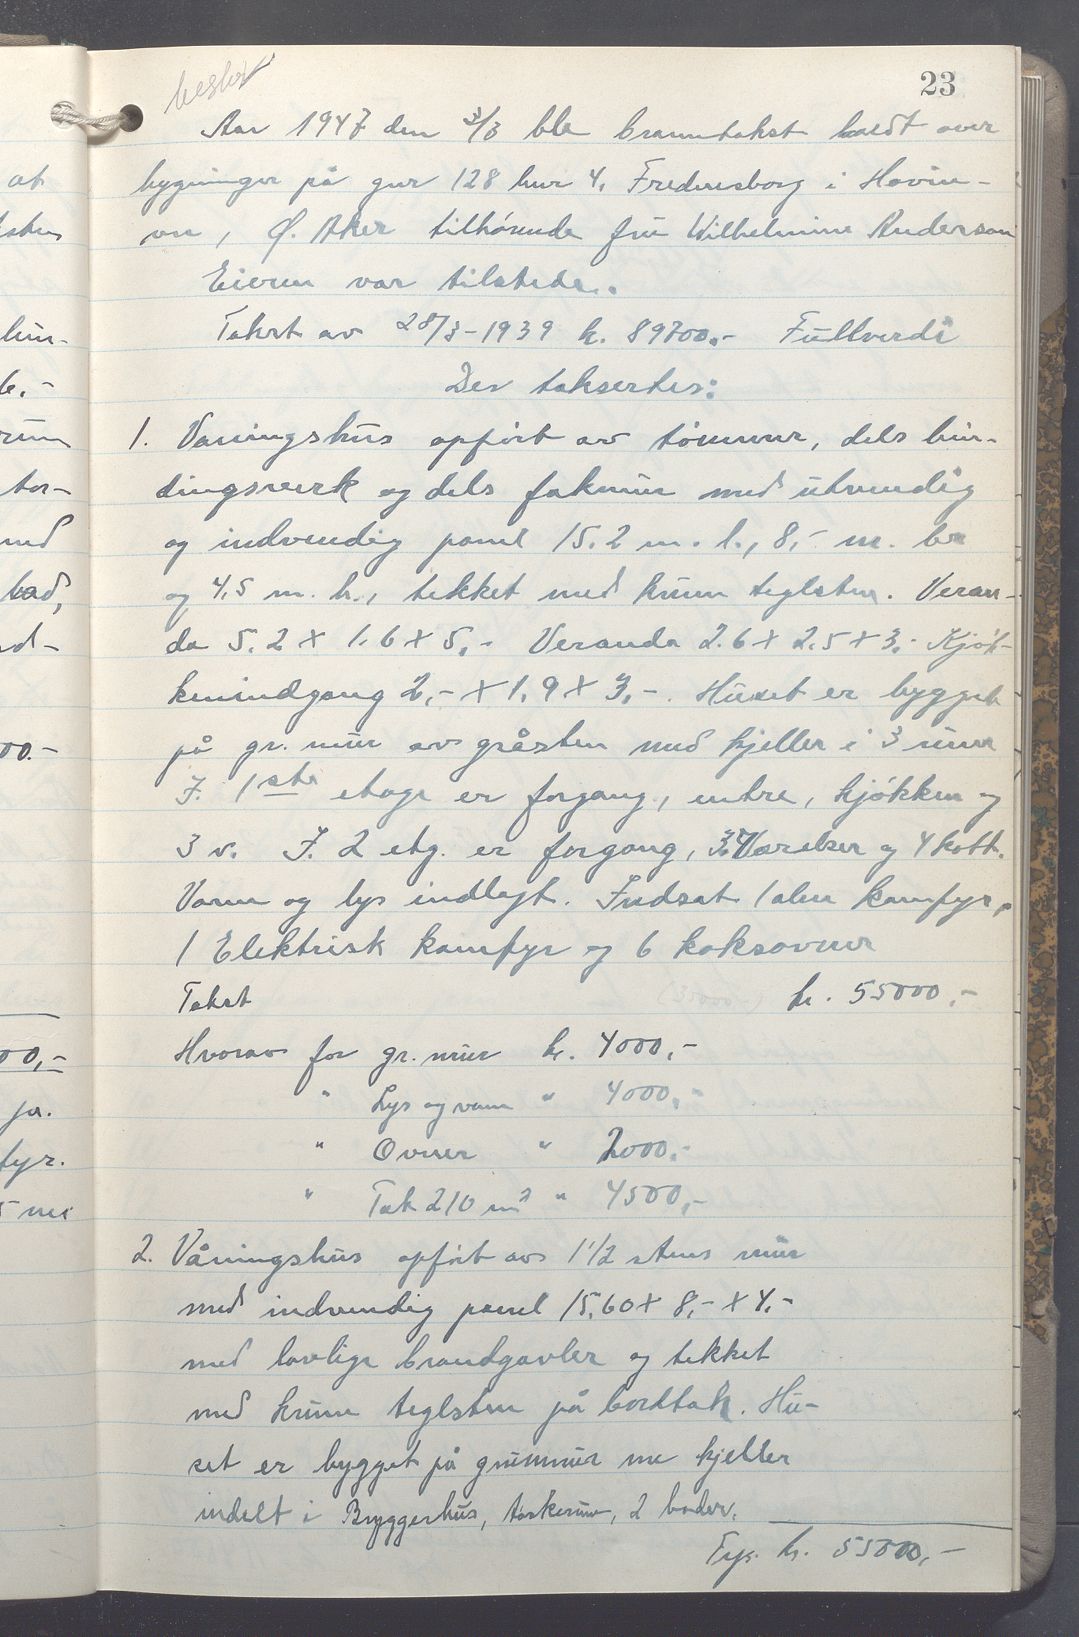 23
Aar 1947 den 3/3 ble branntakst holdt over
bygninger på gnr 128 bnr 4, Fredensborg i Hovin-
vn, Ø. Aker tilhørende fru Wilhelmine Anderson
Eieren var tilstede.
Takst av 28/3-1939 kr. 89700,- Fullverdi
Der taksertes:
1. Vaningshus opført av tømmer, dels bin-
dingsverk og dels fakmur med utvendig
og indvendig panel 15.2 m. l., 8,- m. br
og 4,5 m. h., tekket med krum teglsten. Veran-
da 5.2 x 1.6 x 5,- Veranda 2.6 x 2.5 x 3,- Kjøk-
kenindgang 2,- x 1,9 x 3,-. Huset er bygget
på gr. mur av gråsten med kjeller i 3 rum
I. 1ste etage er forgang, entre, kjøkken og
3 v. I. 2 etg. er forgang, 3 Værelser og 4 kott.
Vann og lys indlagt. Indsat 1 alm komfyr,
1 Elektrisk komfyr og 6 koksovner
Takst kr. 55000,-
Hvorav for gr. mur kr. 4000,-
" Lys og vann " 4000,-
" Ovner " 2000,-
" Tak 210 m² " 4500,-
2. Våningshus opført av 1 1/2 stens mur
med indvendig panel 15,60 x 8,- x 4,-
med lovlige brandgavler og tekket
med krum teglsten på bordtak. Hu-
set er bygget på grunmur me kjeller
indelt i Bryggerhus, tørkerum, 2 boder.
Trp. kr. 55000,-
at
00.-
00,-
fyr.